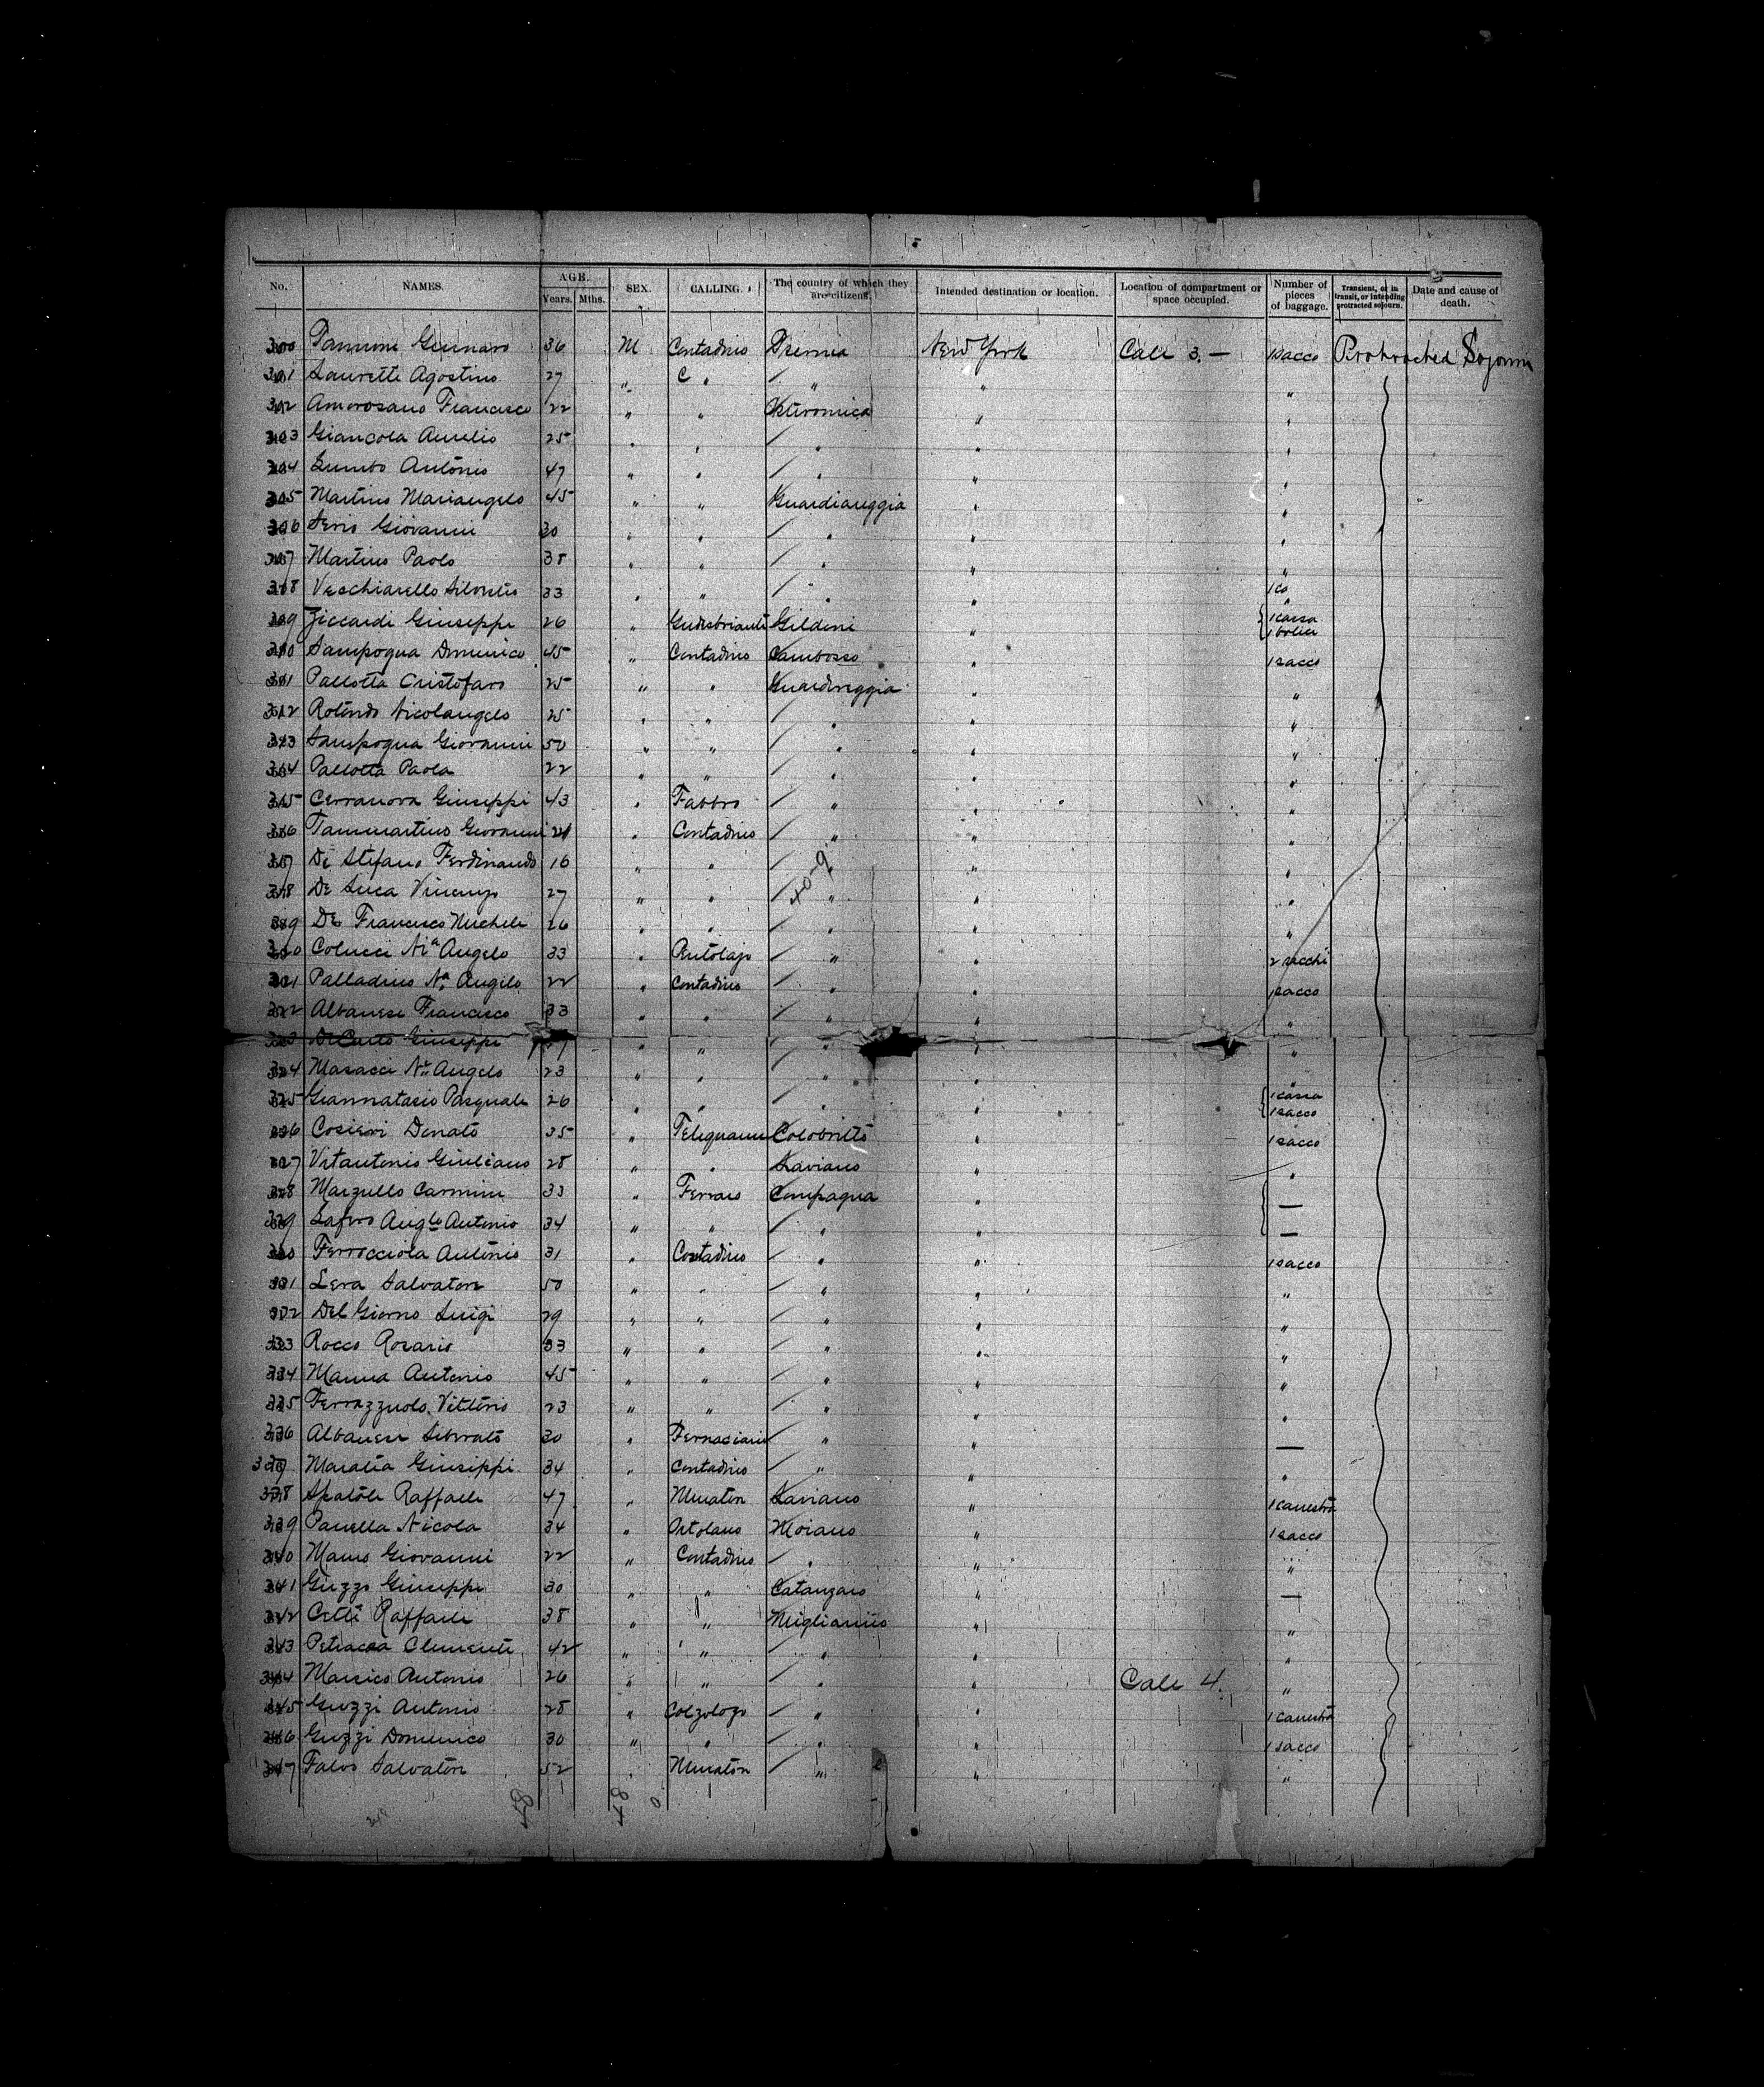 No. NAMES. AGE. Years. Mths. SEX. CALLING. The country of which they are citizens. Intended destination or location. Location of compartment or space occupied. Number of pieces of baggage. Transient, or in transit, or intending protracted sojourn. Date and cause of death.
300 Gennaro 36 M Contadino New York Cale 3. — 1 sacco Protracted Sojourn
301 Laurette Agostino 27 " C " " " "
302 Amorosano Francisco 22 " " " "
303 Giancola Aurelio 25 " " " " "
304 Antonio 47 " " " " "
305 Martino Mariangelo 45 " " Guardiareggia " "
306 Serio Giovanni 30 " " " " "
307 Martino Paolo 38 " " " " "
308 Vecchiarello 33 " " " " 1 co
309 Ziccardi Giuseppe 26 " Gildoni " 1 cassa
310 Sampogna Domenico 45 " Contadino Cambosso " 1 sacco
311 Pallotta Cristofaro 25 " " Guardireggia " "
312 Rotondo Nicolangelo 25 " " " " "
313 Sampogna Giovanni 50 " " " " "
314 Pallotta Paola 22 " " " " "
315 Cerranova Giuseppi 43 " Fabbro " " "
316 Tammartino Giovanni 21 " Contadino " " "
317 Di Stefano Ferdinando 16 " " " " "
318 De Luca Vincenzo 27 " " " " "
319 De Francisco Michele 26 " " " " "
320 Colucci Ni.a Angelo 33 " " " 2 sacchi
321 Palladino N.a Angelo 22 " Contadino " " 1 sacco
322 Albanese Francisco 33 " " " " "
323 De Carlo Giuseppe " " " " "
324 Masacci Angelo 23 " " " " "
325 Giannatasio Pasquale 26 " " " " 1 cassa 1 sacco
326 Donato 35 " " 1 sacco
327 Vitantonio Giuliano 28 " " Laviano " "
328 Marzullo Carmine 33 " Ferraio Compagna " —
329 Lafero Ang.lo Antonio 34 " " " " —
330 Ferrocciola Antonio 31 " Contadino " " 1 sacco
331 Lera Salvatore 50 " " " " "
332 Del Giorno Luigi 29 " " " " "
333 Rocco Rosario 33 " " " " "
334 Manna Antonio 45 " " " " "
335 Ferrazzuolo Vittorio 23 " " " " "
336 Albanese Liberato 30 " Fornaciaio " " —
337 Maralia Giuseppi 34 " Contadino " " "
338 Spatole Raffaele 47 " Muratore Laviano " 1 canestro
339 Panella Nicola 34 " Ortolano Moiano " 1 sacco
340 Mauro Giovanni 22 " Contadino " " "
341 Guzzo Giuseppe 30 " " Catanzaro " —
342 Cetti Raffaele 38 " " " "
343 Petracca Clemente 42 " " " " "
344 Marsico Antonio 26 " " " " Cale 4. "
345 Guzzi Antonio 28 " Colzologo " " 1 canestro
346 Guzzi Domenico 30 " " " " 1 sacco
347 Falvo Salvatore 52 " Muratore " " "